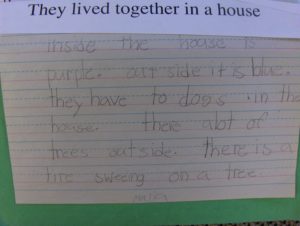 They lived together in a house
inside the house is
purple. out side it is blue.
they have to dogs in the
house. there alot of
trees outside. there is a
tire sweeing on a tree.